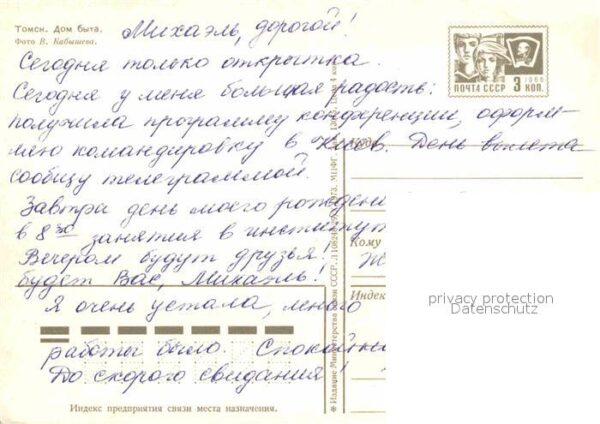 Томск. Дом быта.
Фото В. Кабышева.
Михаэль, дорогой!
Сегодня только открытка.
Сегодня у меня большая радость:
получила программу конференции, оформ-
мляю командировку в Киев. День вылета
сообщу телеграммой.
Завтра день моего рождени
в 8 30 занятия в институт
Вечером будут друзья.
будет Вас, Михаэль!
Я очень устала, много
работы было. Спокойн
До скорого свидания!
ПОЧТА СССР 3 КОП.
1966
Куда
Кому
Индек
Издание Министерства связи СССР.
Индекс предприятия связи места назначения.
privacy protection
Datenschutz